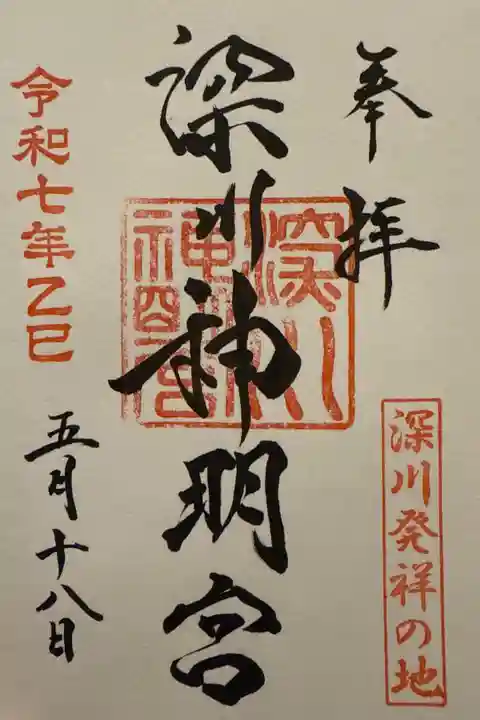 奉拝
深川発祥の地
深川神明宮
深川神明宮
令和七年乙巳
五月十八日